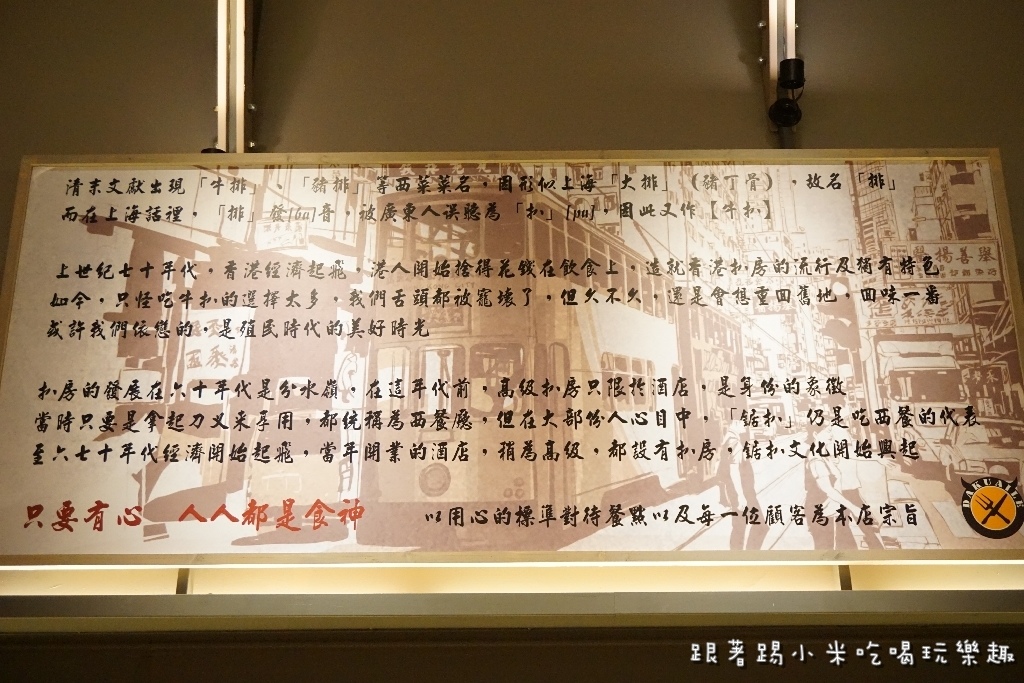 清末文献出現「牛排」、「豬排」等西菜菜名，因形似上海「大排」（豬丁骨），故名「排」
而在上海話裡，「排」發[ba]音，被廣東人误聽為「扒」[pa]，因此又作【牛扒】
上世纪七十年代，香港經濟起飛，港人開始捨得花錢在飲食上，造就香港扒房的流行及獨有特色
如今，只怪吃牛扒的選擇太多，我們舌頭都被寵壞了，但久不久，還是會想重回舊地，回味一番
或許我們依戀的，是殖民時代的美好時光
扒房的發展在六十年代是分水嶺，在這年代前，高级扒房只限於酒店，是身份的象徵
當時只要是拿起刀叉来享用，都统稱為西餐廳，但在大部份人心目中，「鋸扒」仍是吃西餐的代表
至六七十年代經濟開始起飛，當年開業的酒店，稍為高級，都設有扒房，鋸扒文化開始興起
只要有心　人人都是食神
以用心的標準對待餐點以及每一位顧客為本店宗旨
揚善舉
跟著踢小米吃喝玩樂趣